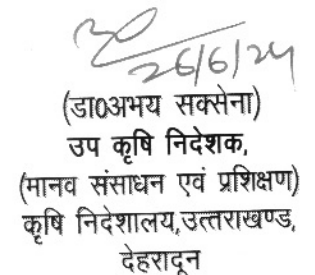 26/6/24
(डा0अभय सक्सेना)
उप कृषि निदेशक,
(मानव संसाधन एवं प्रशिक्षण)
कृषि निदेशालय,उत्तराखण्ड,
देहरादून